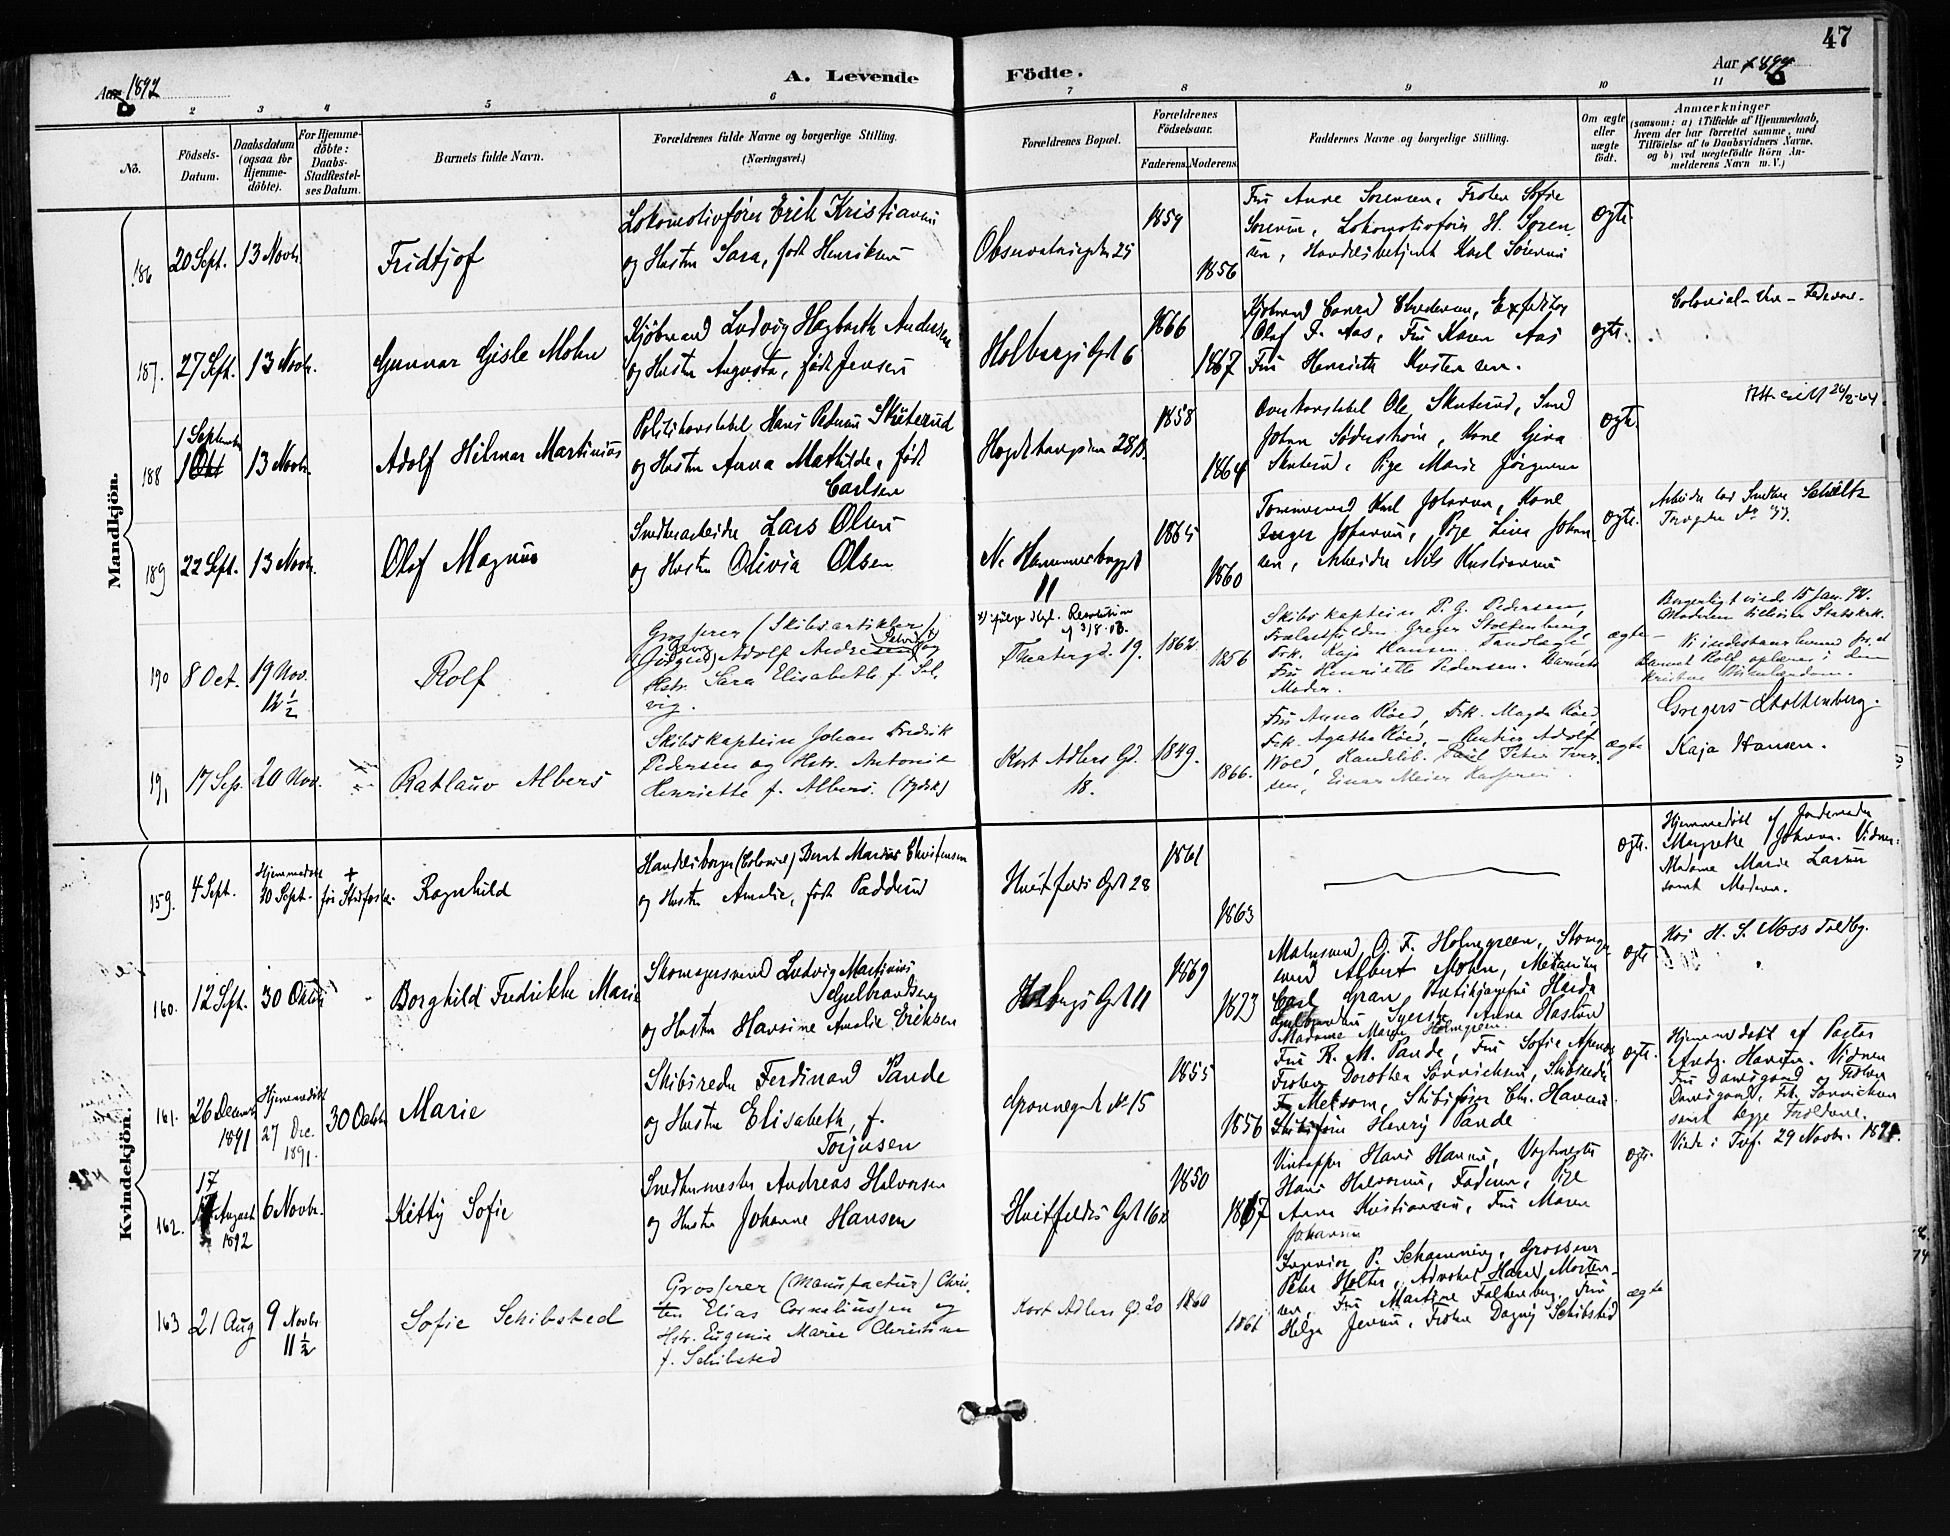 47
Aar 1892
A. Levende
Födte.
Aar 1892
2
3
4
5
6
7
8
9
10
11
No.
Födsels-
Datum.
Daabsdatum
(ogsaa for
Hjemme-
döbte).
For Hjemme-
döbte:
Daabs-
Stadfæstel-
ses Datum.
Barnets fulde Navn.
Forældrenes fulde Navne og borgerlige Stilling.
(Næringsvei.)
Forældrenes Bopæl.
Forældrenes
Födselsaar.
Faderens.
Moderens.
Faddernes Navne og borgerlige Stilling.
Om ægte
eller
uægte
födt.
Anmærkninger
(saasom: a) i Tilfælde af Hjemmedaab,
hvem der har forrettet samme, med
Tilföielse af to Daabsvidners Navne,
og b) ved uægtefödte Börn An-
melderens Navn m. V.)
Mandkjön.
186
20 Sept.
13 Novbr.
Fridtjof
Lokomotivfører Erik Kristiansen
og Hustru Sara, født Henriksen
Observatoriegdn 25
1859
1856
Fru Anne Sorensen, Frøken Sofie
Sorensen, Lokomotivfører H. Soren
sen, Handelsbetjent Karl Sørensen
ægte.
187.
27 Sept.
13 Novbr.
Gunnar Gisle Mohn
Kjøbmand Ludvig Hagbarth Andersen
og Hustru Augusta, født Jensen
Holbergs Gd 6
1866
1867
Olaf F. Aas, Fru Karen Aas
Fru Henriette
ægte.
Colonial-
188
1 September
1 Okt
13 Novbr.
Adolf Hilmar Martinius
Politikonstabel Hans Pedersen Skuterud
og Hustru Anna Mathilde, født
Carlsen
28 B.
1858
1864
Overkonstabel Ole Skuterud, Smed
Johan Søderstrøm, Kone Gina
Skuterud, Pige Marie Jørgensen
ægte
189
22 Sept.
13 Novbr.
Olaf Magnus
Snedkerarbeider Lars Olsen
og Hustru Olivia Olsen
N. Hammersborggd
11
1865
1860
Tømmermand Karl Johansen, Kone
Inger Johansen, Pige Lina Johan
sen, Arbeider Nils Kristiansen
ægte.
190
8 Oct.
19 Nov.
12 1/2
Rolf
Grosserer (Skibsartikler)
Adolf Andresen
Hstr. Sara Elisabeth f. Sol
vig.
Theatergd. 19.
1862
1856
Skibskaptein P. G. Pedersen,
Greger Stoltenberg
Frk. Kaja Hansen
Fru Henriette Pedersen. Barnets
Moder.
ægte
Borgerligt viede 15 Jan. 92.
Gregers Stoltenberg.
Kaja Hansen.
191
17 Sep.
20 Nov.
Ratlauv Albers
Skibskaptein Johan Fredrik
Pedersen og Hstr. Antonie
Henriette f. Albers. (tydsk)
Kort Adlers Gd.
18.
1849.
1866.
Fru Anna Röed, Frk. Magda Röed,
Frk. Agathe Röed, – Rentier Adolf
Wold, Handelsb. Paul Peter Iver-
sen, Einar Meier
ægte
Kvindekjön.
159.
4 Sept.
Hjemmedøbt
30 Sept.
+
før Stadfæstel.
Ragnhild
Handelsborger (Colonial) Bernt Marius Christensen
og Hustru Amalie, født Paddend
Huitfeldts Gd 28
1861
1863
ægte.
Hjemmedøbt af Jordemoder
Margrethe Johnsen. Vidner:
Madame Marie Larsen
samt Moderen.
160.
12 Sept.
30 Oktbr
Borghild Fredrikke Marie
Skomagersvend Ludvig Martinius
Gulbrandsen
og Hustru Hansine Amalie Eriksen
Holbergs Gd 11
1869
1873
Malersvend O. F. Holmgreen,
svend Albert Mohn,
Carl Gran
Madame Marie Holmgreen
ægte
Hos H. S. Næss Toldbg.
161.
26 Decembr
1891
Hjemmedøbt
27 Dec.
1891.
30 Octobr
Marie
Skibsreder Ferdinand Pande
og Hustru Elisabeth, f.
Torjusen
Grønnegd No 15
1855
1856
Fru R. M. Pande, Fru Sofie
Frøken Dorothea Sønnichsen, Skibsreder
F. Melsom, Skibsfører Chr. Hansen
Skibsfører Henry Pande
ægte.
Hjemmedøbt af Pastor
Andr. Hansen. Vidner
samt begge Forældrene.
162.
17
August
1892
6 Novbr.
Kitty Sofie
Snedkermester Andreas Halvorsen
og Hustru Johanne Hansen
Huitfeldts Gd 16
1850
1867
Vintapper Hans Hansen, Vognmester
Hans Halvorsen, Faderen, Pige
Anna Kristiansen, Fru Maren
Johansen
ægte.
Viede i 29 Novbr. 1891.
163
21 Aug
9 Novbr
11 1/2
Sofie Schibsted
Grosserer (Manufactur) Chris-
ten Elias Corneliussen og
Hstr. Eugenie Marie Christine
f. Schibsted
Kort Adlers Gd 20
1860
1861
P. Schanning, Grosserer
Peter Holter, Advokat Harald Morten-
sen, Fru Martine Falkenberg, Fru
Helga Jensen, Frøken Dagny Schibsted
ægte